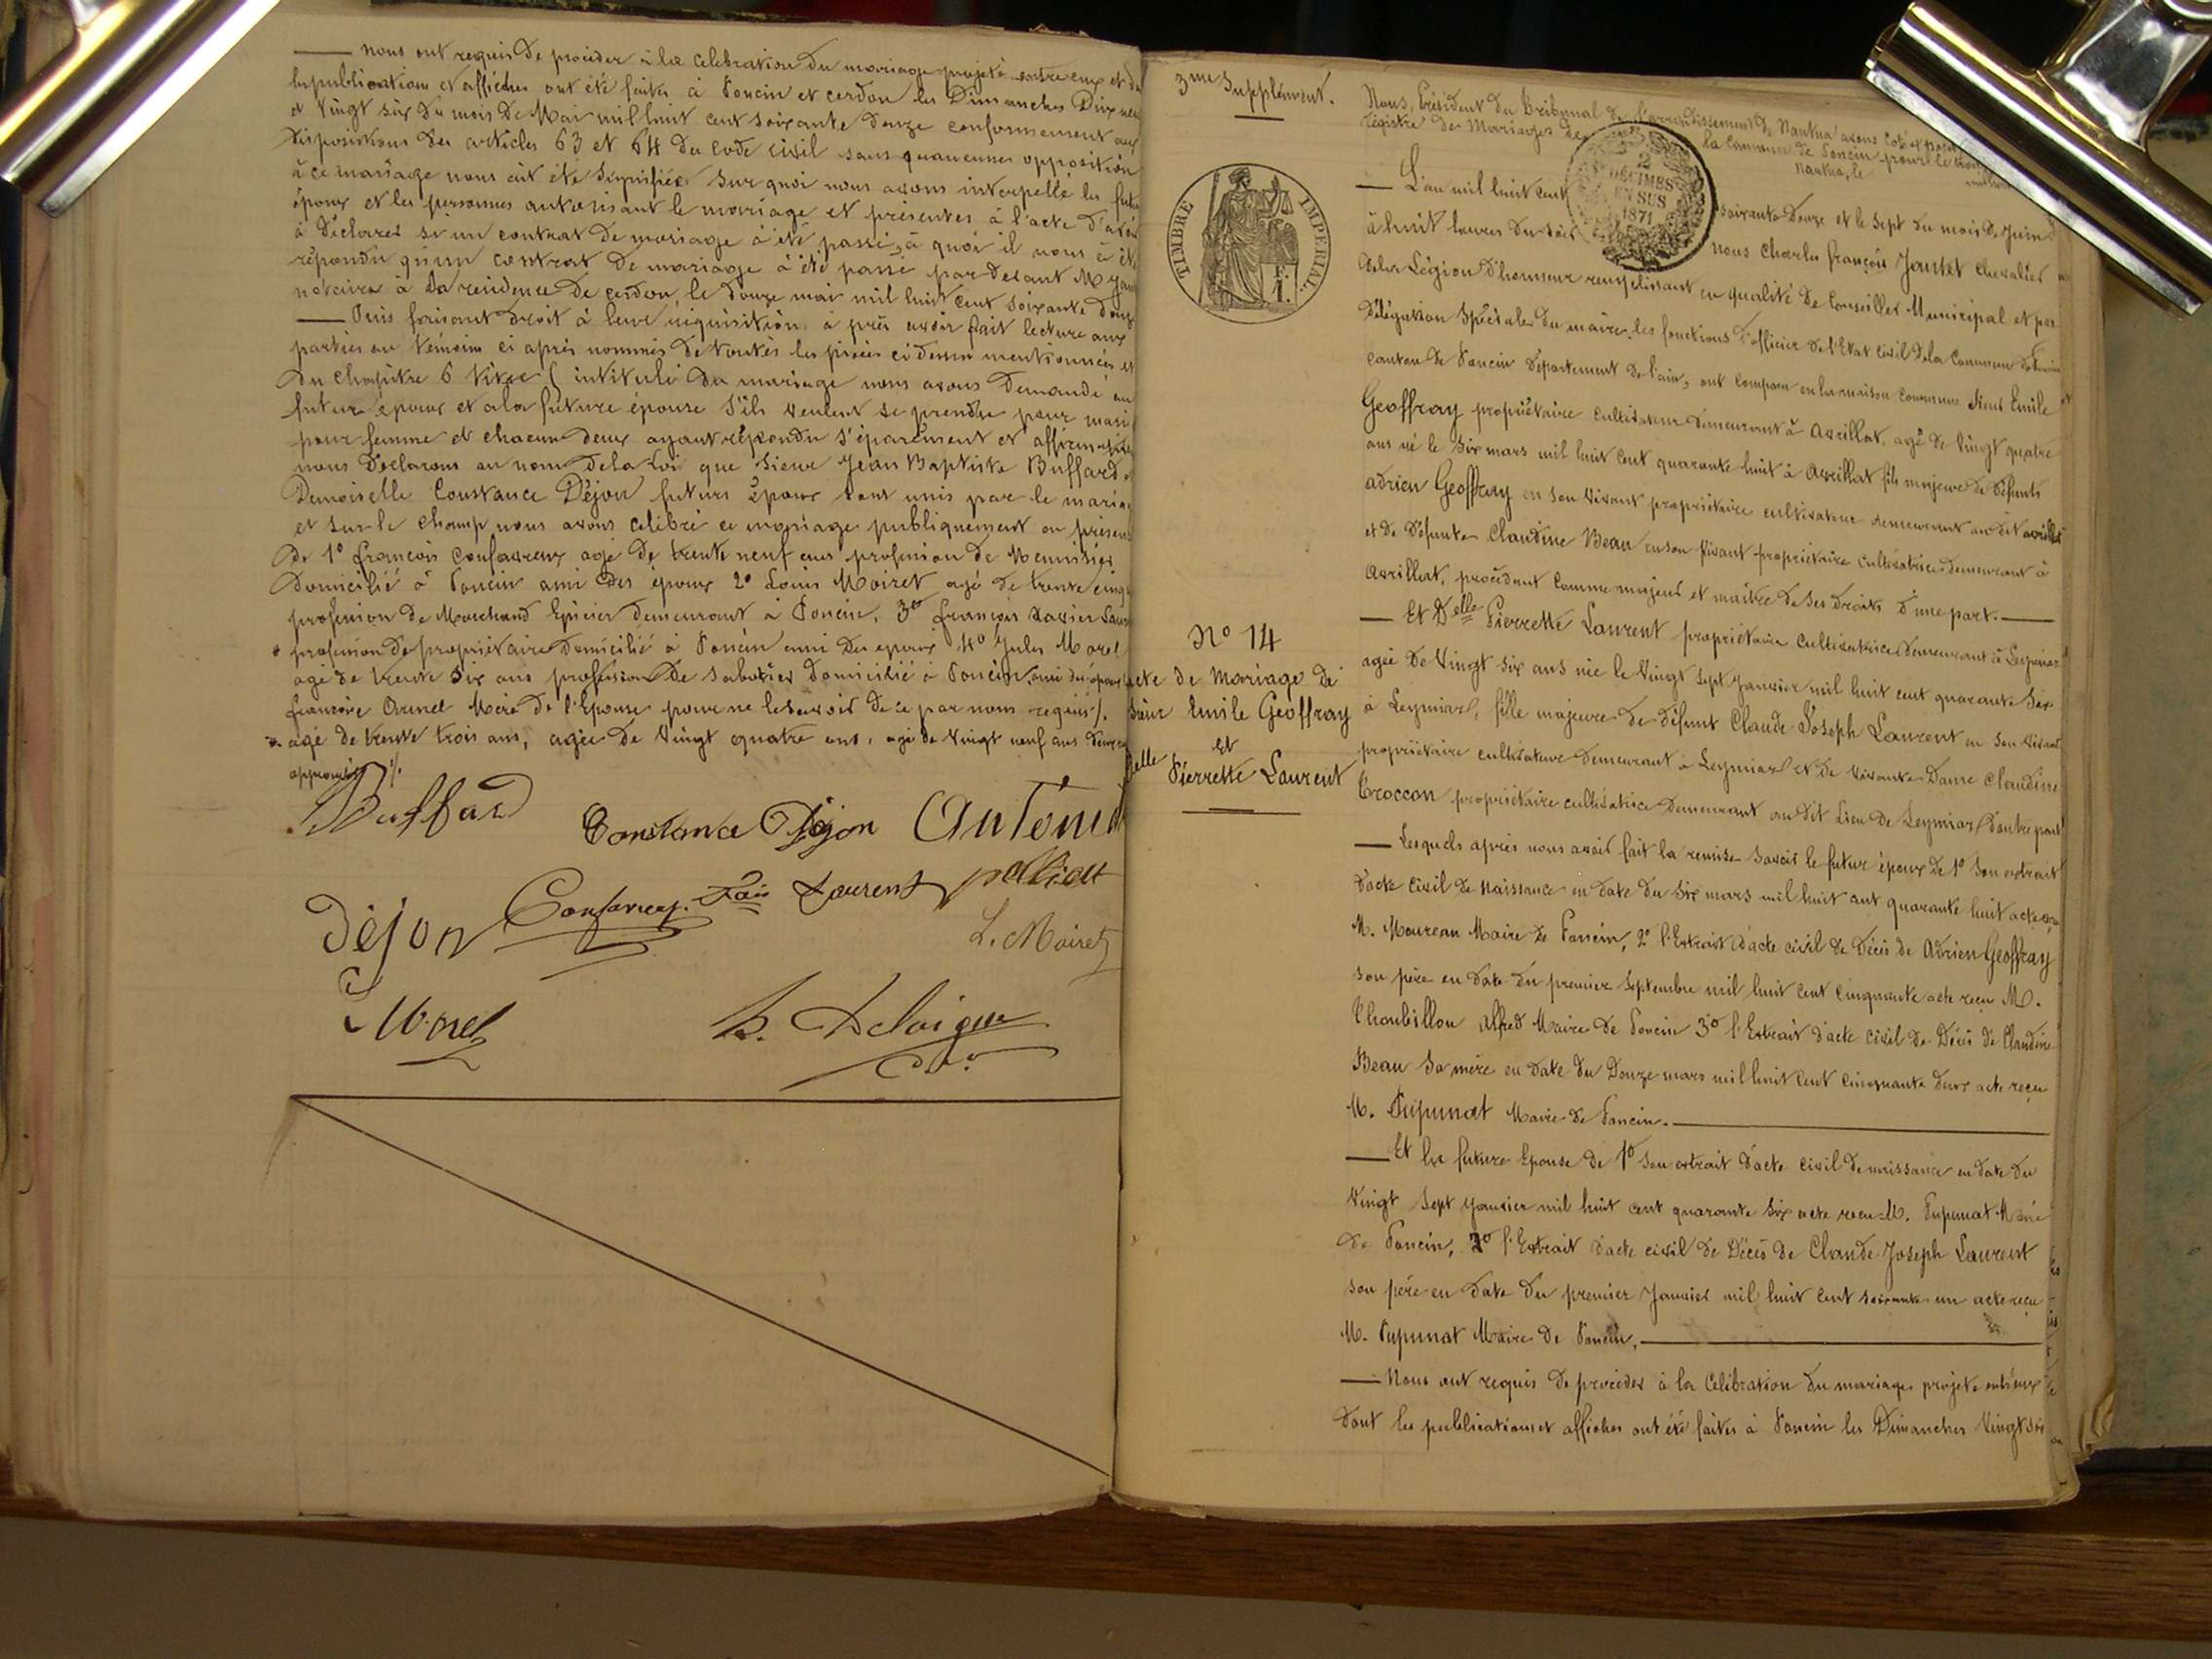 nous ont requis de procéder à la celebration du mariage projeté entre eux et do
les publications et affiches ont été faites à Poncin et cerdon les Dimanches Dix neu
et Vingt six du mois de Mai mil huit cent soixante douze conformement aux
dispositions des articles 63 et 64 du code civil sans qu'aucunes opposition
à ce mariage nous ait été signifiée sur quoi nous avons interpellé les futu
époux et les personnes autorisant le mariage et présentes à l'acte d'avoir
à Déclarer si un contrat de mariage à été passé, à quoi il nous à été
répondu qu'un contrat de mariage à été passé par devant M
notaire à la residence de cerdon, le douze mai mil huit cent soixante douze
Puis faisant droit à leur réquisition à près avoir fait lecture aux
parties au témoins ci après nommés de toutes les pièces ci dessus mentionnées et
du chapitre 6 titre 5 intitulé du mariage nous avons Demandé au
futur époux et a la future épouse s'ils veulent se prendre pour mari
pour femme et chacun deux ayant répondu s'éparément et affirmative
nous Déclarons au nom de la Loi que Sieur Jean Baptiste Buffard et
Demoiselle Constance Déjon futurs époux sont unis par le mariage
et sur-le champ nous avons célébré ce mariage publiquement en présence
de 1º françois Confavreux agé de trente neuf ans profession de Menuisier
domicilié à Poncin ami des époux 2º Louis Moiret agé de trente cinq
profession de Marchand Epicier demeurant à Poncin, 3º françois Xavier Laurent
profession de propriétaire domicilié à Poncin ami des époux 4º Jules Morel
agé de trente six ans profession de sabotier domicilié à Poncin, ami des époux
françoise Mère de l'Epouse pour ne le savoir de ce par nous requis /.
agé de trente trois ans, agée de Vingt quatre ans, agé de Vingt neuf ans
approuvés /.
Buffard
Constance Déjon
Antoni
Confavreux
Laurent
Déjon
L. Moiret
Morel
Delaigue
3me Supplément.
Nous, Président du Tribunal de l'arrondissement de Nantua avons coté et
registre de Mariages de la Commune de Poncin pour le
Nantua, le
TIMBRE IMPERIAL
F.
1.
2
DÉCIMES
EN SUS
1871
L'an mil huit cent soixante douze et le sept du mois de Juin
à huit heures du soir nous Charles françois Jantet Chevalier
de la Légion d'honneur remplissant en qualité de Conseiller Municipal et par
Délégation Spéciale du maire, les fonctions d'officier de l'Etat civil de la Commune de Poncin
canton de Poncin département de l'ain, ont comparu en la maison commune Sieur Emile
Geoffray propriétaire cultivateur demeurant à Avrillat, agé de vingt quatre
ans né le six mars mil huit cent quarante huit à Avrillat fils majeur de défunts
adrien Geoffray en son vivant propriétaire cultivateur demeurant au dit avrillat
et de défunte Claudine Beau en son vivant propriétaire cultivatrice demeurant à
Avrillat, procédant comme majeur et maître de ses droits d'une part.
Et Delle Pierrette Laurent propriétaire cultivatrice demeurant à Leymiat
agée de Vingt six ans née le Vingt sept Janvier mil huit cent quarante six
à Leymiat, fille majeure de défunt Claude Joseph Laurent en son vivant
propriétaire cultivateur demeurant à Leymiat et de vivante Dame Claudine
Croccon propriétaire cultivatrice demeurant au dit lieu de Leymiat d'autre part
Lesquels après nous avoir fait la remise savoir le futur époux de 1º Son extrait
d'acte civil de naissance en date du six mars mil huit cent quarante huit acte reçu
M. Moureau Maire de Poncin, 2º l'Extrait d'acte civil de Décès de Adrien Geoffray
son père en date du premier Septembre mil huit cent cinquante acte reçu M.
Alfred Maire de Poncin 3º l'Extrait d'acte civil de Décès de Claudine
Beau sa mère en date du Douze mars mil huit cent cinquante deux acte reçu
M. Pupunat Maire de Poncin.
Et la future Epouse de 1º son extrait d'acte civil de naissance en date du
Vingt sept Janvier mil huit cent quarante six acte recu M. Pupunat Maire
de Poncin, 2º l'Extrait d'acte civil de Décès de Claude Joseph Laurent
son père en date du premier Janvier mil huit cent soixante un acte reçu
M. Pupunat Maire de Poncin.
Nous ont requis de procéder à la Célébration du mariage projeté entr'eux
dont les publications et affiches ont été faites à Poncin les Dimanches Vingt six
Nº 14
acte de Mariage de
Sieur Emile Geoffray
et
Delle Pierrette Laurent